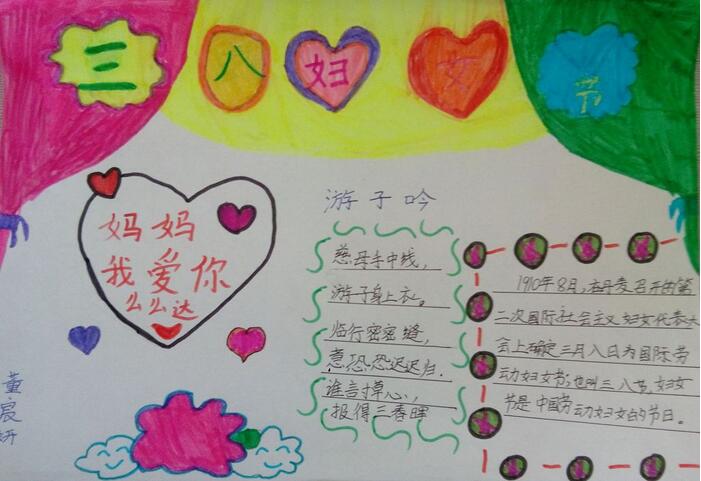 三八妇女节
妈妈
我爱你
么么达
游子吟
慈母手中线,
游子身上衣。
临行密密缝,
意恐恐迟迟归.
谁言掉心,
报得三春晖
1910年8月,在丹麦召开的第
二次国际社会主义妇女代表大
会上确定三月八日为国际劳
动妇女节;也叫三八节,妇女
节是中国劳动妇女的节日。
董宸妍